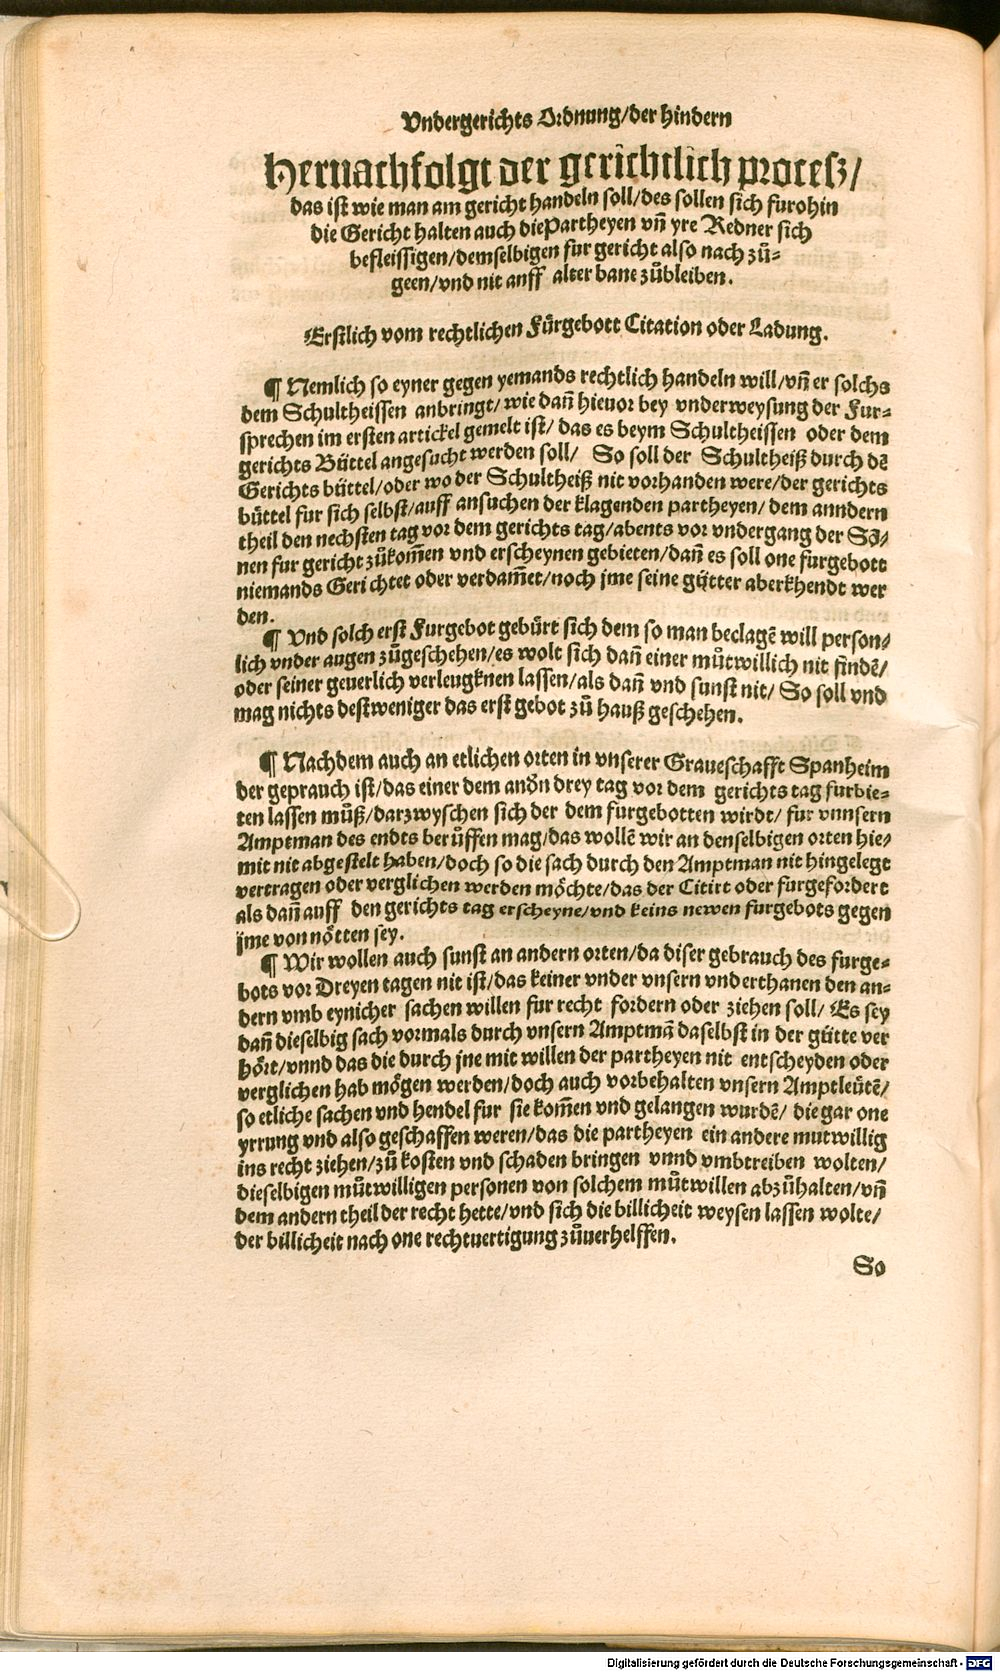 Vndergerichts Ordnung/der hindern
Hernachfolgt der gerichtlich proceß/
das ist wie man am gericht handeln soll/des sollen sich furohin
die Gericht halten auch diePartheyen vñ yre Redner sich
befleissigen/demselbigen fur gericht also nach zů-
geen/vnd nit anff alter bane zůbleiben.
Erstlich vom rechtlichen Fürgebott Citation oder Ladung.
¶ Nemlich so eyner gegen yemands rechtlich handeln will/vñ er solchs
dem Schultheissen anbringt/wie dañ hieuor bey vnderweysung der Fur-
sprechen im ersten artickel gemelt ist/ das es beym Schultheissen oder dem
gerichts Büttel angesucht werden soll/ So soll der Schultheiß durch dẽ
Gerichts büttel/oder wo der Schultheiß nit vorhanden were/der gerichts
büttel fur sich selbst/auff ansuchen der klagenden partheyen/ dem anndern
theil den nechsten tag vor dem gerichts tag/abents vor vndergang der Sõ/
nen fur gericht zůkom̃en vnd erscheynen gebieten/dañ es soll one furgebott
niemands Geri chtet oder verdam̃et/noch jme seine gütter aberkhendt wer
den.
¶ Vnd solch erst Furgebot gebürt sich dem so man beclagẽ will person/
lich vnder augen zůgeschehen/es wolt sich dañ einer můtwillich nit findẽ/
oder seiner geuerlich verleugknen lassen/als dañ vnd sunst nit/ So soll vnd
mag nichts destweniger das erst gebot zů hauß geschehen.
¶ Nachdem auch an etlichen orten in vnserer Graueschafft Spanheim
der geprauch ist/das einer dem andn̄ drey tag vor dem gerichts tag furbie-
ten lassen můß/darzwyschen sich der dem furgebotten wirdt/ fur vnnsern
Amptman des endts berůffen mag/das wollẽ wir an denselbigen orten hie/
mit nit abgestelt haben/doch so die sach durch den Amptman nit hingelegt
vertragen oder verglichen werden möchte/das der Citirt oder furgefordert
als dañ auff den gerichts tag erscheyne/vnd keins newen furgebots gegen
jme von nötten sey.
¶ Wir wollen auch sunst an andern orten/da diser gebrauch des furge-
bots vor Dreyen tagen nit ist/das keiner vnder vnsern vnderthanen den an-
dern vmb eynicher sachen willen fur recht fordern oder ziehen soll/ Es sey
dañ dieselbig sach vormals durch vnsern Amptmã daselbst in der gütte ver
hört/vnnd das die durch jne mit willen der partheyen nit entscheyden oder
verglichen hab mögen werden/doch auch vorbehalten vnsern Amptleütẽ/
so etliche sachen vnd hendel fur sie kom̃en vnd gelangen wurdẽ/ die gar one
yrrung vnd also geschaffen weren/das die partheyen ein andere mutwillig
ins recht ziehen/zů kosten vnd schaden bringen vnnd vmbtreiben wolten/
dieselbigen můtwilligen personen von solchem můtwillen abzůhalten/vñ
dem andern theil der recht hette/vnd sich die billicheit weysen lassen wolte/
der billicheit nach one rechtuertigung zůuerhelffen.
So
Digitalisierung gefördert durch die Deutsche Forschungsgemeinschaft - DFG